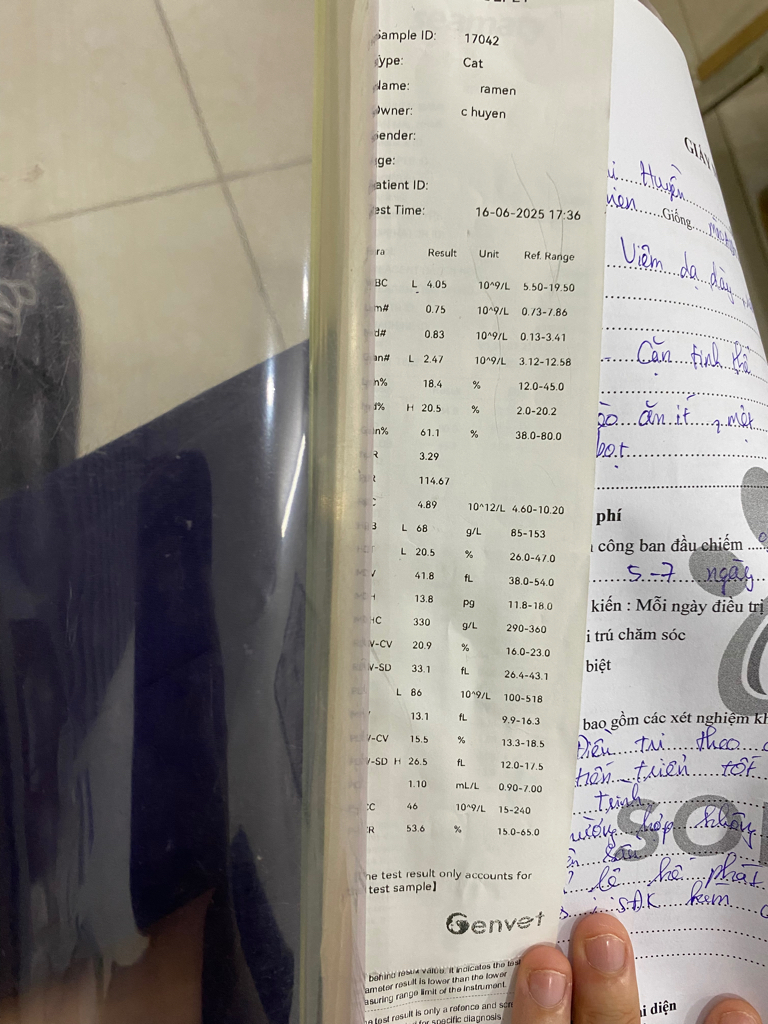 Sample ID: 17042
ype: Cat
Name: ramen
Owner: c huyen
ender:
ge:
atient ID:
est Time: 16-06-2025 17:36
ra Result Unit Ref. Range
BC L 4.05 10^9/L 5.50-19.50
m# 0.75 10^9/L 0.73-7.86
d# 0.83 10^9/L 0.13-3.41
an# L 2.47 10^9/L 3.12-12.58
n% 18.4 % 12.0-45.0
d% H 20.5 % 2.0-20.2
n% 61.1 % 38.0-80.0
R 3.29
114.67
C 4.89 10^12/L 4.60-10.20
B L 68 g/L 85-153
L 20.5 % 26.0-47.0
V 41.8 fL 38.0-54.0
H 13.8 pg 11.8-18.0
HC 330 g/L 290-360
W-CV 20.9 % 16.0-23.0
W-SD 33.1 fL 26.4-43.1
L 86 10^9/L 100-518
13.1 fL 9.9-16.3
V-CV 15.5 % 13.3-18.5
V-SD H 26.5 fL 12.0-17.5
1.10 mL/L 0.90-7.00
CC 46 10^9/L 15-240
CR 53.6 % 15.0-65.0
he test result only accounts for
test sample】
Genvet
behind result value. It indicates the test
ameter result is lower than the lower
asuring range limit of the instrument.
e test result is only a refence and scr
for specific diagnosis,
GIẤY
Huyền
Giống
Viêm dạ dày
Căn tính
ăn ít, một
phí
công ban đầu chiếm
5-7 ngày
kiến : Mỗi ngày điều trị
i trú chăm sóc
biệt
bao gồm các xét nghiệm kh
Điều trị theo
tiến triển tốt
trình
hợp không
SĐK kèm
i diện